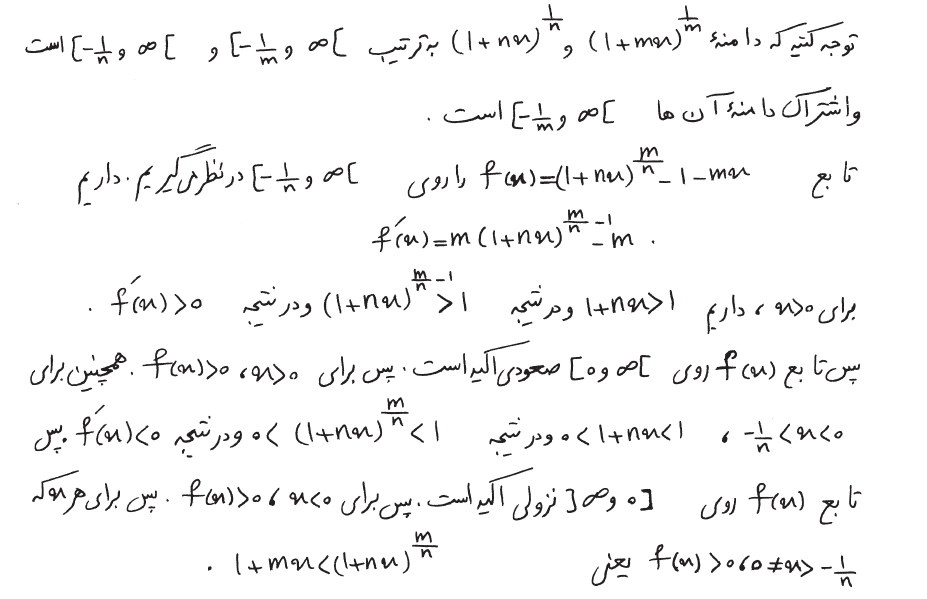 توجه کنید که دامنهٔ (1+mx)^{1/m} و (1+nx)^{1/n} به ترتیب [-1/m و ∞[ و [-1/n و ∞[ است
و اشتراک دامنهٔ آن ها [-1/m و ∞[ است .
تابع f(x)=(1+nx)^{m/n}-1-mx را روی [-1/n و ∞[ در نظر می گیریم . داریم
f'(x)=m(1+nx)^{m/n -1}-m .
برای x>0 ، داریم 1+nx>1 و در نتیجه (1+nx)^{m/n -1}>1 و در نتیجه f'(x)>0 .
پس تابع f(x) روی [0 و ∞[ صعودی اکید است . پس برای x>0 ، f(x)>0 . همچنین برای
-1/n<x<0 ، 0<1+nx<1 و در نتیجه 0<(1+nx)^{m/n}<1 و در نتیجه f'(x)<0 . پس
تابع f(x) روی [0 و ∞] نزولی اکید است . پس برای x<0 ، f(x)>0 . پس برای هر x که
-1/n<x≠0 ، f(x)>0 یعنی 1+mx<(1+nx)^{m/n} .